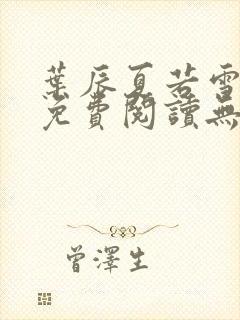 葉辰夏若雪
免費閱讀無
曾澤生